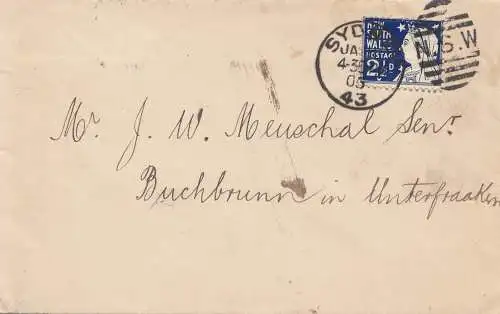 NEW
SOUTH
WALES
POSTAGE
2½D
SYD
JA
4-3
03
43
N.S.W
Mr. J. W. Meuschal Senr.
Buchbrunn in Unterfraaken